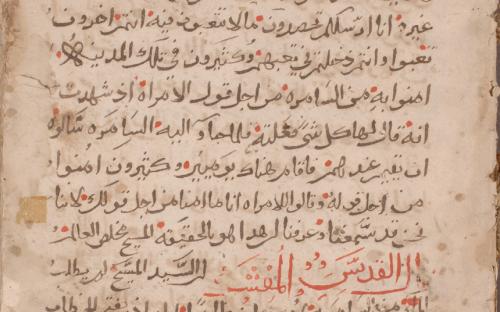 غيره انا ارسلتكم تحصدون مالا تتعبون فيه انتم اخرون
تعبوا وانتم دخلتم في تعبهم وكثيرون في تلك المدينه
امنوا به من السامره من اجل قول الامراه اذ شهدت
انه قال لها كل شي فعلته فلما جاو اليه السامره سالوه
ان يقيم عندهم فاقام هناك يومين وكثيرون امنوا
من اجل قوله وقالوا للامراه اننا ما امنا من اجل قولك لاننا
نحن قد سمعنا وعرفنا ان هذا هو بالحقيقه المسيح مخلص العالم
القديس المفسر ان السيد المسيح لم يطلب